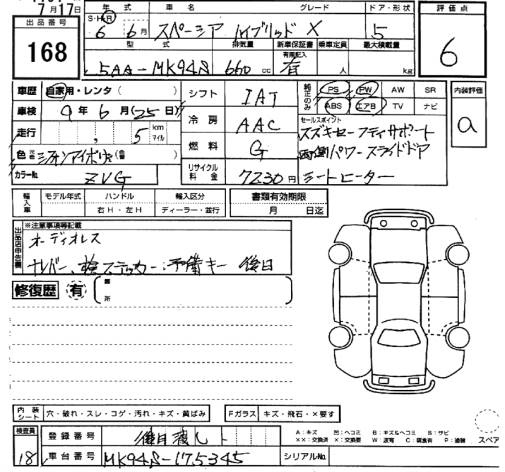 月17日
年式 車名 グレード ドア・形状 評価点
出品番号 S・H・R 6年 6月 スペーシア ハイブリッド X 5
168
型式 排気量 新車保証書 乗車定員 最大積載量
有無記入
5AA-MK94S 660cc 有 人 kg
6
車歴 自家用・レンタ( ) シフト IAT 純正のみ PS PW AW SR 内装評価
車検 9年 6月(25日) ABS エアB TV ナビ a
冷房 AAC セールスポイント
走行 , 5 km マイル スズキセーフティサポート
燃料 G 両側パワースライドドア
色 シフォンアイボリー
カラーNo. ZVG リサイクル料金 7230円 シートヒーター
輸入車 モデル年式 ハンドル 輸入区分 書類有効期限
年 右H・左H ディーラー・並行 月 日迄
出品店申告書 ※注意事項等記載
オーディオレス
ナンバー、検ステッカー、予備キー 後日
修復歴 有 箇所
内装シート 穴・破れ・スレ・コゲ・汚れ・キズ・黄ばみ Fガラス キズ・飛石・×要す スペア
A:キズ U:ヘコミ B:キズ&ヘコミ S:サビ
XX:交換済 X:要交換 W:波有 C:腐食有 P:塗装
検査員 18 登録番号 後日渡し
車台番号 MK94S-175345 シリアルNo.